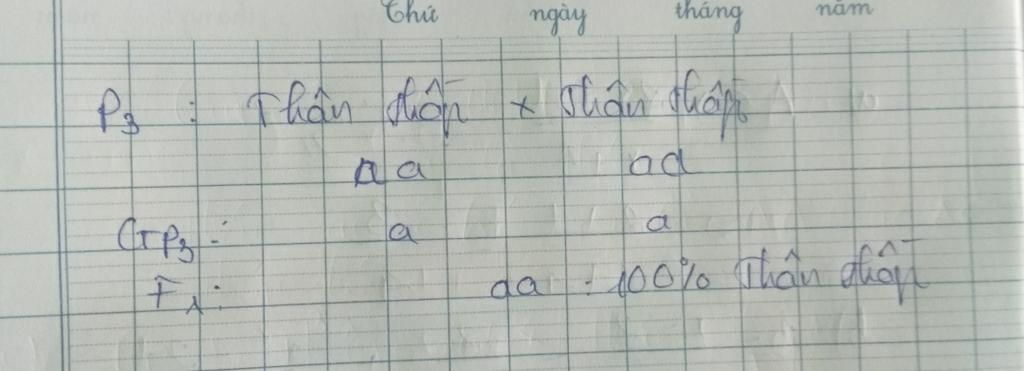 Thứ ngày tháng năm
P3 : Thân thấp × Thân thấp
aa aa
GP3 : a a
F1 : aa : 100% Thân thấp